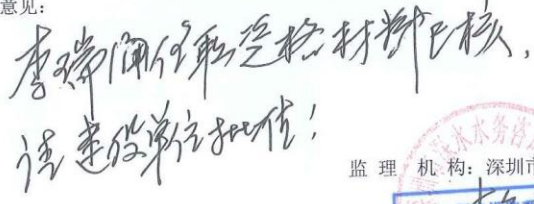 意见：
李瑞闻任职资格材料已核，
请建设单位批准！
监 理 机 构：深圳市
水务咨